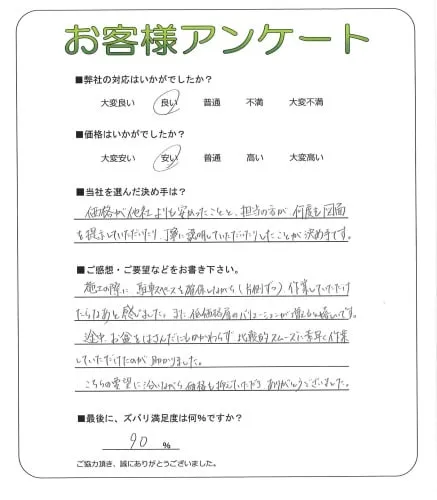 お客様アンケート
■弊社の対応はいかがでしたか？
大変良い 良い 普通 不満 大変不満
■価格はいかがでしたか？
大変安い 安い 普通 高い 大変高い
■当社を選んだ決め手は？
価格が他社よりも安かったことと、担当の方が何度も図面
を提示していただいたり、丁寧に説明していただいたりしたことが決め手です。
■ご感想・ご要望などをお書き下さい。
施工の際に駐車スペースを確保しながら（片側ずつ）作業していただけ
たらなあと感じました。また低価格層のバリエーションが増えると嬉しいです。
途中お盆をはさんだにもかかわらず比較的スムーズに素早く作業
していただけたのが助かりました。
こちらの要望に沿いながら価格も抑えていただき ありがとうございました。
■最後に、ズバリ満足度は何％ですか？
90 ％
ご協力頂き、誠にありがとうございました。